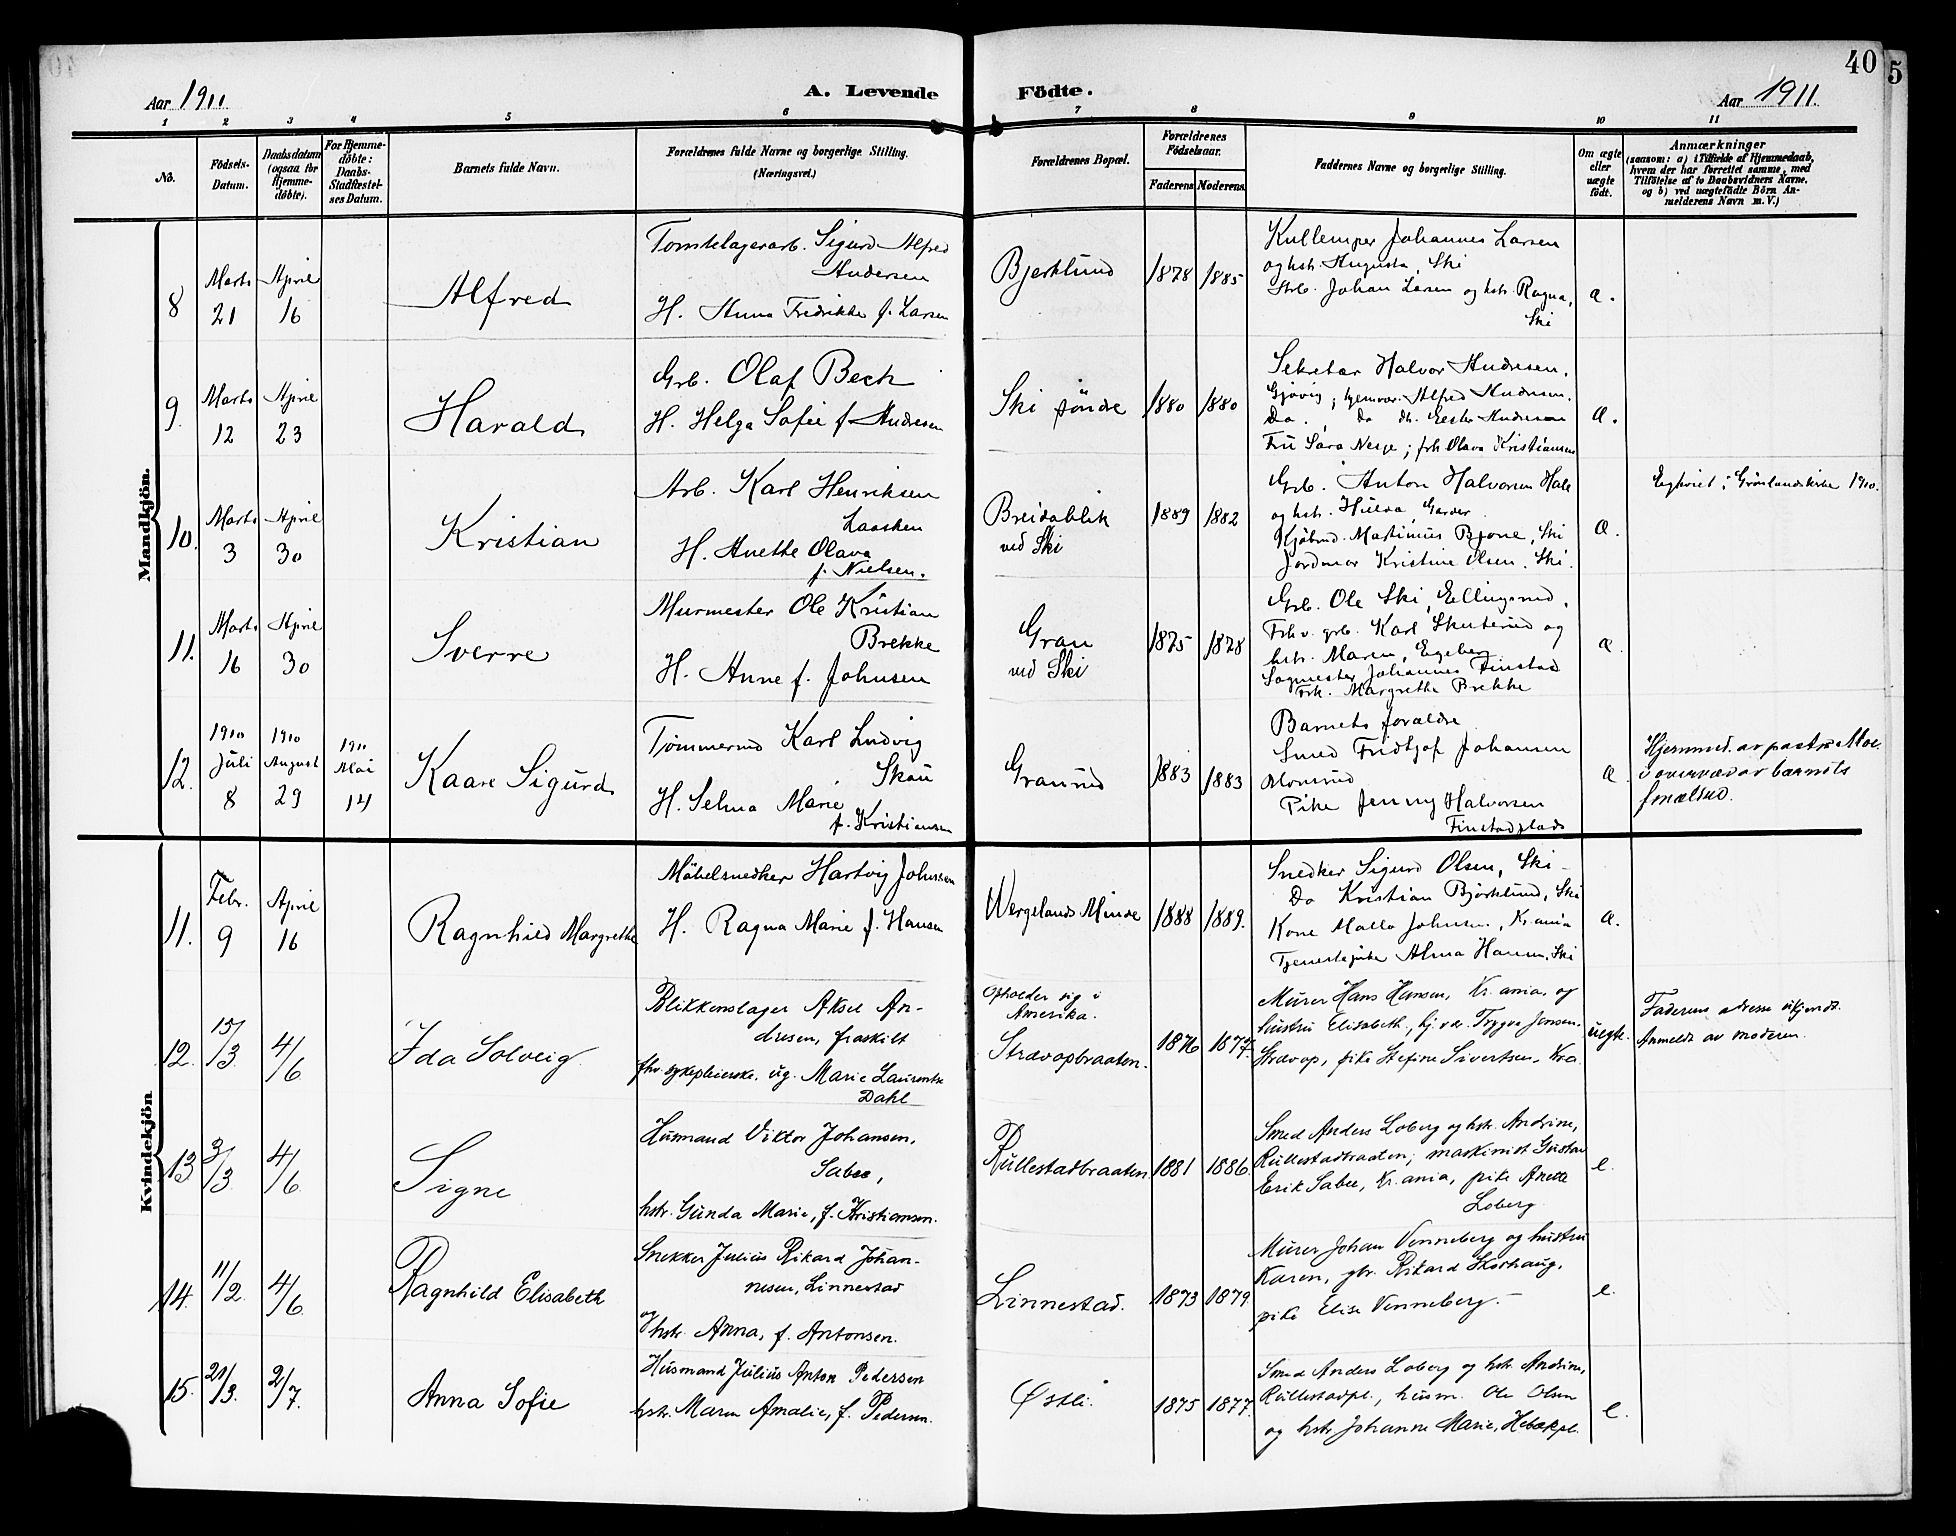 40
5
Aar 1911.
A. Levende
Födte.
Aar 1911.
1 2 3 4 5 6 7 8 9 10 11
No.
Födsels-
Datum.
Daabsdatum
(ogsaa for
Hjemme-
döbte).
For Hjemme-
döbte:
Daabs-
Stadfæstel-
ses Datum.
Barnets fulde Navn.
Forældrenes fulde Navne og borgerlige Stilling.
(Næringsvei.)
Forældrenes Bopæl.
Forældrenes
Födselsaar.
Faderens Moderens.
Faddernes Navne og borgerlige Stilling.
Om ægte
eller
uægte
födt.
Anmærkninger
(saasom: a) i Tilfælde af Hjemmedaab,
hvem der har forrettet samme, med
Tilföielse af to Daabsvidners Navne.
og b) ved uægtefödte Börn An-
melderens Navn m. V.)
Mandkjön.
8
Marts
21
April
16
Alfred
Tomtelagerarb. Sigurd Alfred
Andersen
H. Anna Fredrikke f. Larsen
Bjerklund
1878 1885
Kullemper Johannes Larsen
og hstr. Augusta, Ski
Arb. Johan Larsen og hstr. Ragna,
Ski
a.
9.
Marts
12
April
23
Harald
Grb. Olaf Bech
H. Helga Sofie f Andresen
Ski söndre
1880 1880
Sekretær Halvor Andresen,
Gjøvig; hjemvær. Alfred Andresen.
Do. Do dh. Ester Andresen
Fru Sara Nesje; frk Olava Kristiansen
a.
10.
Marts
3
April
30
Kristian
Arb. Karl Henriksen
Laasken
H. Anette Olava
f. Nielsen.
Breidablik
ved Ski
1889 1882
Grb. Anton Halvorsen Hale
og hstr. Hulda, Garder
Kjøbmd. Martinius Bjone, Ski
Jordmor Kristine Olsen, Ski.
a.
i Grønlandskirke 1910.
11.
Marts
16
April
30
Sverre
Murmester Ole Kristian
Brekke
H. Anne f. Johnsen
Gran
ved Ski
1875 1878
Grb. Ole Ski, Ellingsrud,
Frhv. grb. Karl Skuterud og
hstr. Maren, Egeberg
Sagmester Johannes Finstad
Frk. Margrethe Brekke
a.
12.
1910
Juli
8
1910
August
29
1911
Mai
14
Kaare Sigurd
Tømmermd Karl Ludvig
Skau
H. Selma Marie
f. Kristiansen
Granrud
1883 1883
Barnets forældre
Smed Fridtjof Johansen
Pike Jenny Halvorsen
Finstadplads
a.
Hjemmed. av pastor Moe
i overvær av barnets
forældre.
Kvindekjön
11.
Febr.
9
April
16
Ragnhild Margrethe
Möbelsnedker Hartvig Johnsen
H. Ragna Marie f. Hansen
Wergelands Minde
1888 1889.
Snedker Sigurd Olsen, Ski -
Do Kristian Bjørklund, Ski
Kone Malla Johnsen, Kr.ania
Tjenestepike Alma Hansen, Ski
a.
12.
15/3
4/6
Ida Solveig
Blikkenslager Aksel An-
dresen, fraskilt
fhv. sykepleierske, ug. Marie Laurentse
Dahl
Opholder sig i
Amerika.
Strævopbraaten.
1876 1877.
Murer Hans Hansen, Kr.ania, og
hustru Elisabeth, hj.vær. Trygve Jensen,
Strævop, pike Stefine Sivertsen, Kra.
uegte.
Faderens adresse ukjendt.
Anmeldt av moderen.
13
3/3
4/6
Signe
Husmand Viktor Johansen,
Sabee,
hstr. Gunda Marie, f. Kristiansen.
Rullestadbraaten
1881 1886.
Smed Anders Loberg og hstr. Andrine,
Rullestadbraaten; maskinist Gustav
Erik Sabee, Kr.ania, pike Anette
Loberg.
e.
14.
11/2
4/6.
Ragnhild Elisabeth
Snekker Julius Rikard Johan-
nesen, Linnestad
og hstr. Anna, f. Antonsen.
Linnestad.
1873 1879.
Murer Johan Venneberg og hustru
Karen, gbr. Rikard Skorhaug,
pike Elise Venneberg. -
e.
15.
21/3.
2/7.
Anna Sofie
Husmand Julius Anton Pedersen
hstr. Maren Amalie, f. Pedersen.
Østli.
1875 1877.
Smed Anders Loberg og hstr. Andrine,
Rullestadpl., husm. Ole Olsen
og hstr. Johanne Marie, Hebækpl.
e.